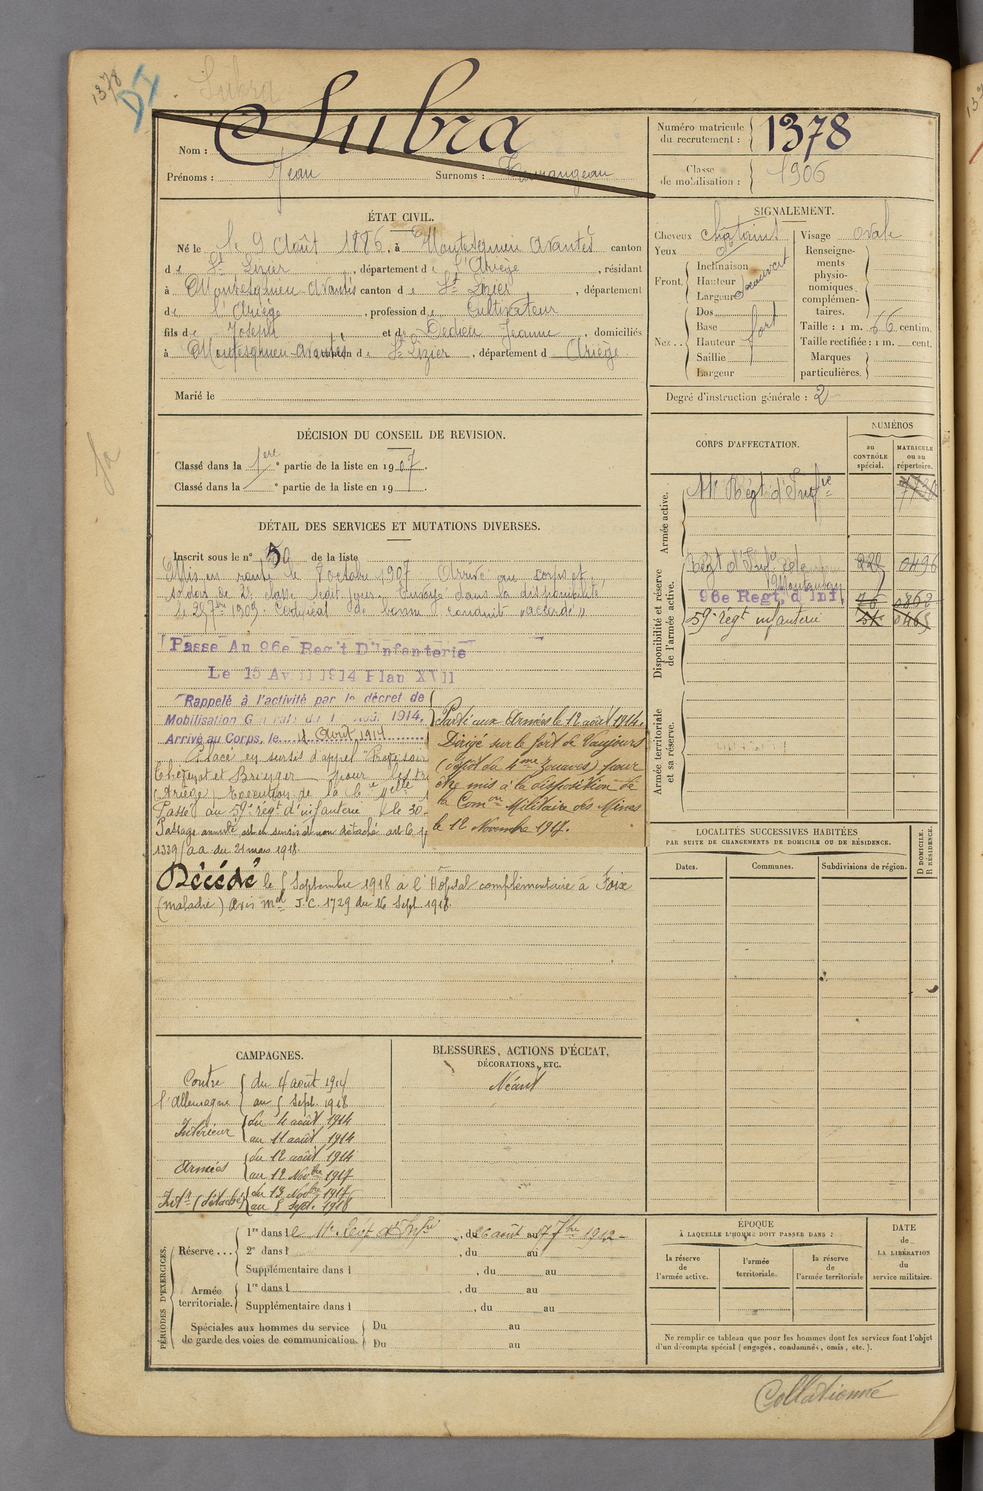 1378
Subra
Nom : Subra
Prénoms : Jean Surnoms :
Numéro matricule du recrutement : 1378
Classe de mobilisation : 1906
ÉTAT CIVIL.
Né le le 9 Août 1886, à Montesquieu Avantès canton
de St Lizier, département de l'Ariège, résidant
à Montesquieu-Avantès canton de St Lizier, département
de l'Ariège, profession de Cultivateur
fils de Joseph et de Dedieu Jeanne, domiciliés
à Montesquieu-Avantès canton de St Lizier, département d Ariège
Marié le
SIGNALEMENT.
Cheveux châtains
Yeux
Front. Inclinaison
Hauteur découvert
Largeur
Nez . . Dos
Base fort
Hauteur
Saillie
Largeur
Visage ovale
Renseigne-
ments
physio-
nomiques
complémen-
taires.
Taille : 1 m. 66 centim.
Taille rectifiée : 1 m. cent.
Marques
particulières.
Degré d'instruction générale : 2
DÉCISION DU CONSEIL DE REVISION.
Classé dans la 1ere partie de la liste en 1907.
Classé dans la e partie de la liste en 19 .
CORPS D'AFFECTATION.
NUMÉROS
au CONTRÔLE spécial.
MATRICULE ou au répertoire.
Armée active.
11e Régt d'Infrie
Disponibilité et réserve de l'armée active.
Régt d'Infie de
Montauban
229 0496
96e Regt d'Inf.
59e régt infanterie
Armée territoriale et sa réserve.
DÉTAIL DES SERVICES ET MUTATIONS DIVERSES.
Inscrit sous le n° 59 de la liste
Mis en route le 7 octobre 1907 Arrivé au corps et
soldat de 2e classe ledit jour. Envoyé dans la disponibilité
le 25 7bre 1909 Certificat de bonne conduite "accordé"
Passe Au 96e Reg't D'Infanterie
Le 15 Avril 1914 Plan XVII
Rappelé à l'activité par le décret de
Mobilisation Générale du 1 Août 1914,
Arrivé au Corps, le 4 Août 1914
Parti aux Armées le 12 août 1914.
Dirigé sur le fort de Vaujours
(dépôt du 4me Zouaves) pour
être mis à la disposition de
la Comon Militaire des Mines
le 12 Novembre 1917.
Placé en sursis d'appel
(Ariège)
Passé au 59e régt d'infanterie le 30
Passage annulé est en sursis et non détaché
1339/aa du 21 mars 1918.
Décédé le 5 Septembre 1918 à l'Hôpital complémentaire à Foix
(maladie) Avis mel J.C. 1729 du 16 Sept 1918.
LOCALITÉS SUCCESSIVES HABITÉES
PAR SUITE DE CHANGEMENTS DE DOMICILE OU DE RÉSIDENCE.
Dates. Communes. Subdivisions de région. D DOMICILE. R RÉSIDENCE.
CAMPAGNES.
Contre l'Allemagne du 4 août 1914
au 5 Sept. 1918
Intérieur du 4 août 1914
au 11 août 1914
Armées du 12 août 1914
au 12 Novbre 1917
Intr (détaché) du 13 Novbre 1917
au 5 Sept. 1918
BLESSURES, ACTIONS D'ÉCLAT,
DÉCORATIONS, ETC.
Néant
PÉRIODES D'EXERCICES.
Réserve . . . 1re dans le 11e Régt d'Infie, du 26 août au 17 7bre 1912
2e dans l , du au
Supplémentaire dans l , du au
Armée territoriale. 1re dans l , du au
Supplémentaire dans l , du au
Spéciales aux hommes du service de garde des voies de communication. Du au
Du au
ÉPOQUE
À LAQUELLE L'HOMME DOIT PASSER DANS :
la réserve de l'armée active. l'armée territoriale. la réserve de l'armée territoriale
DATE de LA LIBÉRATION du service militaire.
Ne remplir ce tableau que pour les hommes dont les services font l'objet
d'un décompte spécial (engagés, condamnés, omis, etc.).
Collationné